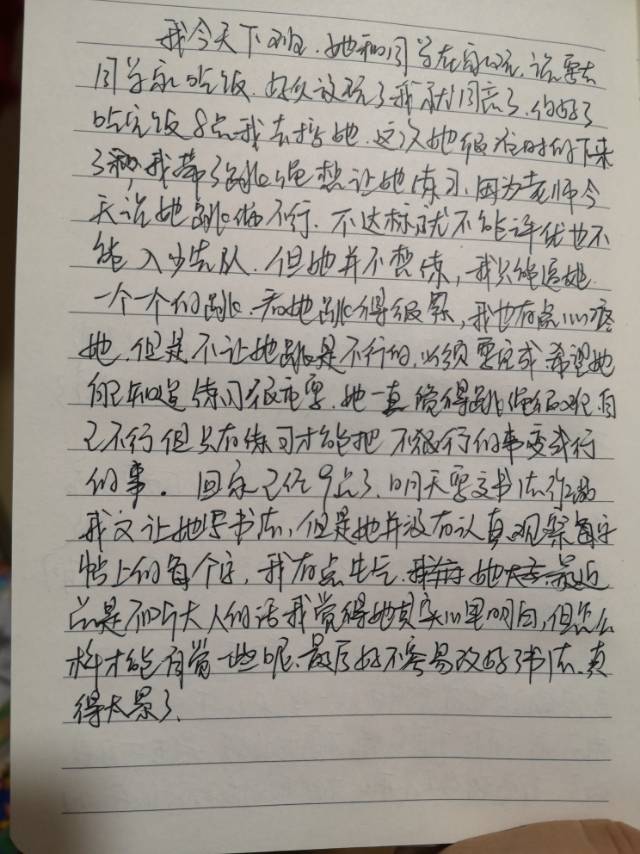 我今天下班，她和同学在家玩，说要去
同学家吃饭，好久没玩了我就同意了，约好了
吃完饭8点我去接她，这次她很准时的下来
了，我带了跳绳想让她练习，因为老师今
天说她跳绳不行，不达标就不能评优也不
能入少先队，但她并不想练，我只能逼她
一个一个的跳，看她跳得很累，我也有点心疼
她，但是不让她跳是不行的，必须要完成希望她
自己知道练习很重要，她一直觉得跳绳很难自
己不行但只有练习才能把不行的事变成行
的事。回家已经9点了，明天要交书法作品
我又让她写书法，但是她并没有认真观察每字
帖上的每个字，我有点生气，她最近
总是不听大人的话我觉得她其实心里明白，但怎么
样才能自觉一些呢，最后好不容易改好了书法，真
得太累了，